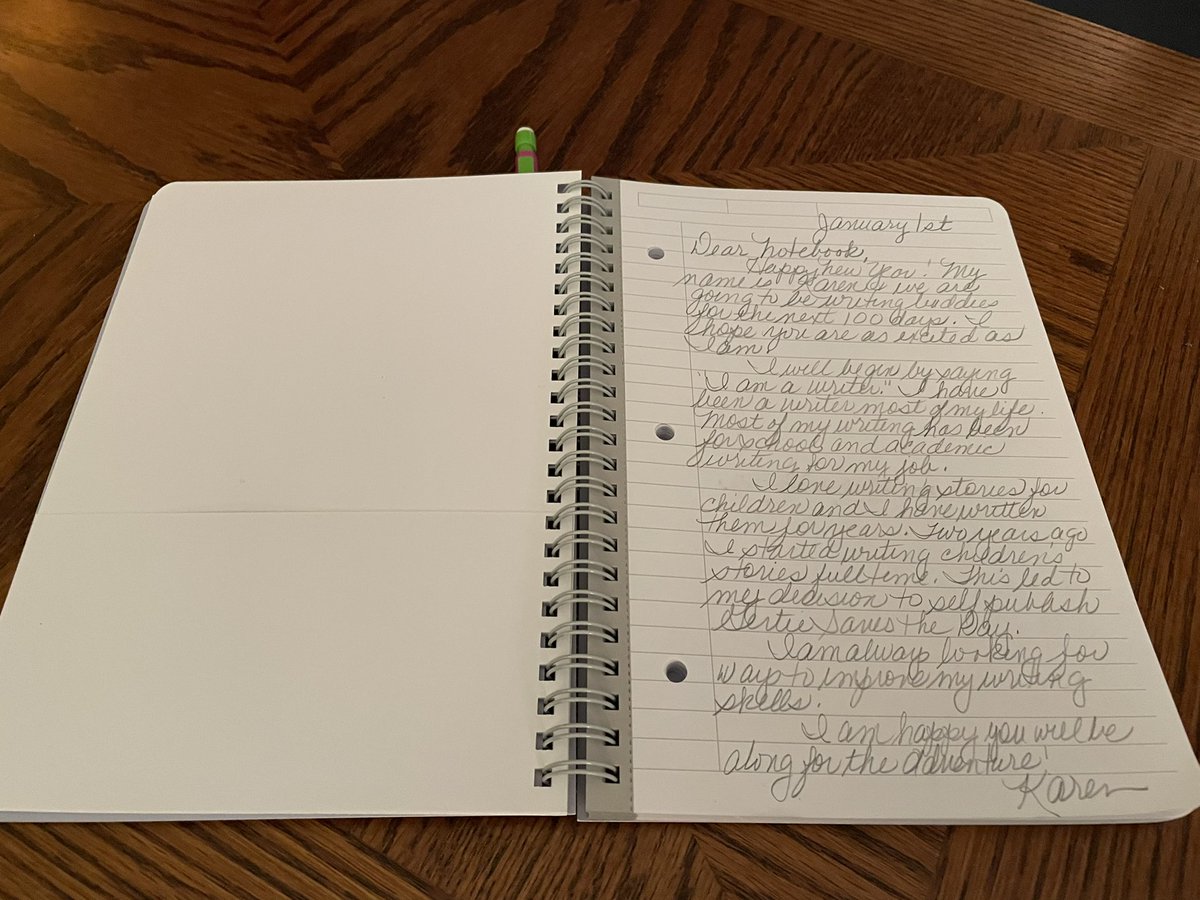 January 1st
Dear Notebook,
Happy New Year! My
name is Karen & we are
going to be writing buddies
for the next 100 days. I
hope you are as excited as
I am.
I will begin by saying
"I am a writer." I have
been a writer most of my life.
Most of my writing has been
for school and academic
writing for my job.
I love writing stories for
children and I have written
them for years. Two years ago
I started writing children's
stories full time. This led to
my decision to self publish
Gertie Saves the Day.
I am always looking for
ways to improve my writing
skills.
I am happy you will be
along for the adventure!
Karen